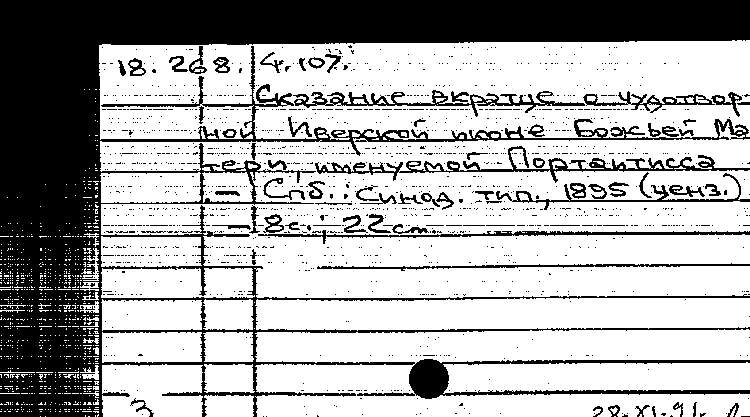 18. 268. 4.107.
Сказание вкратце о чудотвор-
ной Иверской иконе Божьей Ма
тери, именуемой Портаитисса
.— Спб.: Синод. тип., 1895 (ценз.)
.— 8с.; 22см.
3
28.XI.91.